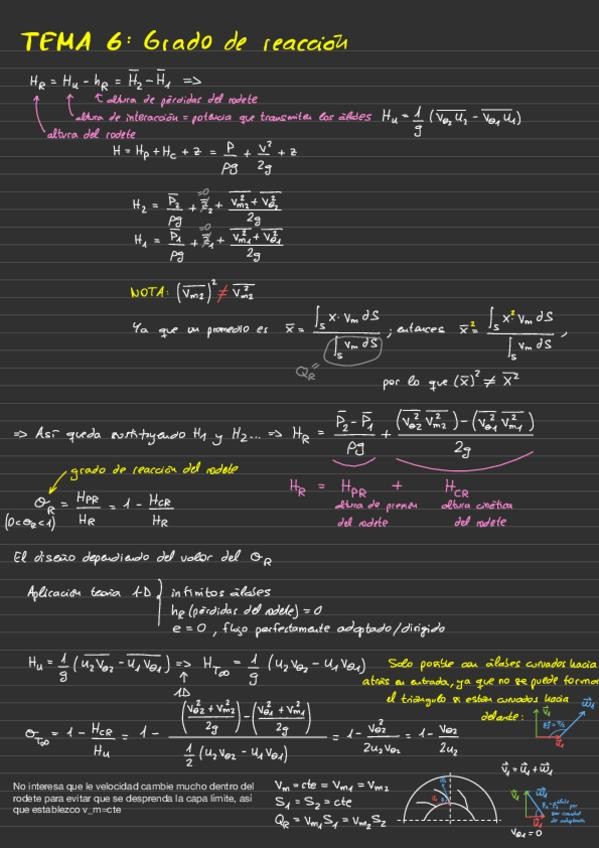 TEMA 6: Grado de reacción
H_R = H_u - h_R = H̄_2 - H̄_1 =>
altura de pérdidas del rodete
altura de interacción = potencia que transmiten los álabes H_u = 1/g (\overline{v_θ2 u_2} - \overline{v_θ1 u_1})
altura del rodete
H = H_p + H_c + z = P/ρg + v²/2g + z
H_2 = P̄_2/ρg + z̄_2 (=0) + (\overline{v_m2² + v_θ2²})/2g
H_1 = P̄_1/ρg + z̄_1 (=0) + (\overline{v_m1² + v_θ1²})/2g
NOTA: (\overline{v_m2})² ≠ \overline{v_m2²}
Ya que un promedio es x̄ = ∫_S x·v_m dS / ∫_S v_m dS ; entonces \overline{x²} = ∫_S x²·v_m dS / ∫_S v_m dS ,
Q_R"
por lo que (x̄)² ≠ \overline{x²}
=> Así queda sustituyendo H_1 y H_2... => H_R = (P̄_2 - P̄_1)/ρg + ((\overline{v_θ2²} \overline{v_m2²}) - (\overline{v_θ1²} \overline{v_m1²}))/2g
grado de reacción del rodete
H_R = H_PR + H_CR
altura de presión del rodete
altura cinética del rodete
σ_R = H_PR/H_R = 1 - H_CR/H_R
(0<σ_R<1)
El diseño dependiendo del valor del σ_R
Aplicación teoría 1-D { infinitos álabes
h_R (pérdidas del rodete) = 0
e = 0 , flujo perfectamente adaptado/dirigido
H_u = 1/g (\overline{u_2 v_θ2} - \overline{u_1 v_θ1}) => H_T∞ = 1/g (u_2 v_θ2 - u_1 v_θ1)
1D
Solo posible con álabes curvados hacia
atrás en entrada, ya que no se puede formar
el triángulo si están curvados hacia
delante:
σ_T∞ = 1 - H_CR/H_u = 1 - (((v_θ2² + v_m2²)/2g) - ((v_θ1² + v_m1²)/2g)) / (1/2 (u_2 v_θ2 - u_1 v_θ1)) = 1 - v_θ2²/(2u_2 v_θ2) = 1 - v_θ2/2u_2
v⃗_1 = u⃗_1 + w⃗_1
No interesa que le velocidad cambie mucho dentro del
rodete para evitar que se desprenda la capa límite, así
que establezco v_m=cte
v_m = cte = v_m1 = v_m2
S_1 = S_2 = cte
Q_R = v_m1 S_1 = v_m2 S_2
v_θ1 = 0